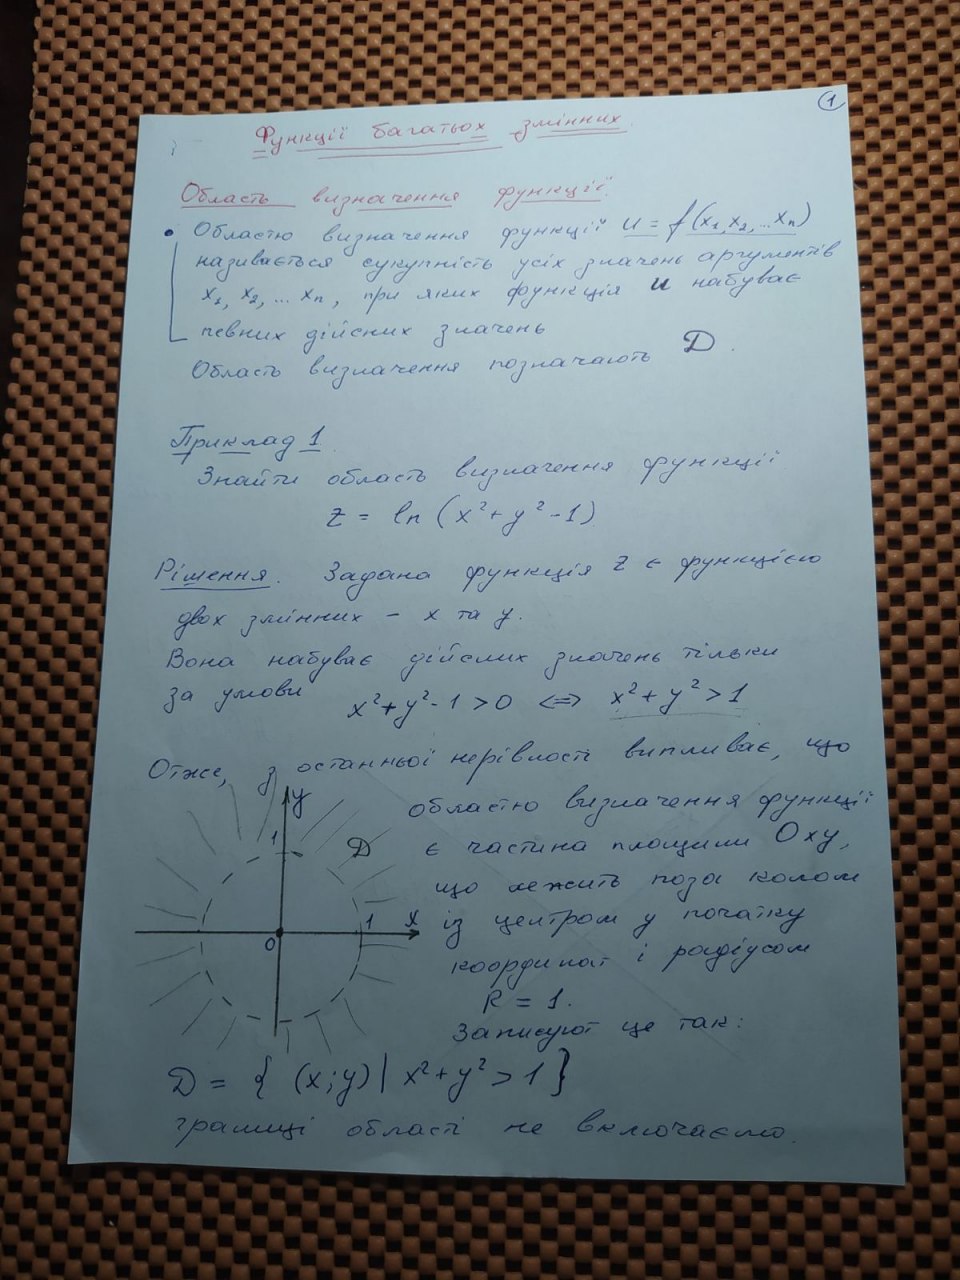 1
Функції багатьох змінних.
Область визначення функції.
• Областю визначення функції u = f(x₁, x₂, ... xₙ)
називається сукупність усіх значень аргументів
x₁, x₂, ... xₙ, при яких функція u набуває
певних дійсних значень
Область визначення позначають D.
Приклад 1
Знайти область визначення функції
z = ln (x² + y² - 1)
Рішення. Задана функція z є функцією
двох змінних – x та y.
Вона набуває дійсних значень тільки
за умови x² + y² - 1 > 0 <=> x² + y² > 1
Отже, з останньої нерівності випливає, що
областю визначення функції
є частина площини Oxy,
що лежить поза колом
із центром у початку
координат і радіусом
R = 1.
Записуют це так:
y
1
D
1
x
0
D = { (x; y) | x² + y² > 1 }
границі області не включаємо.